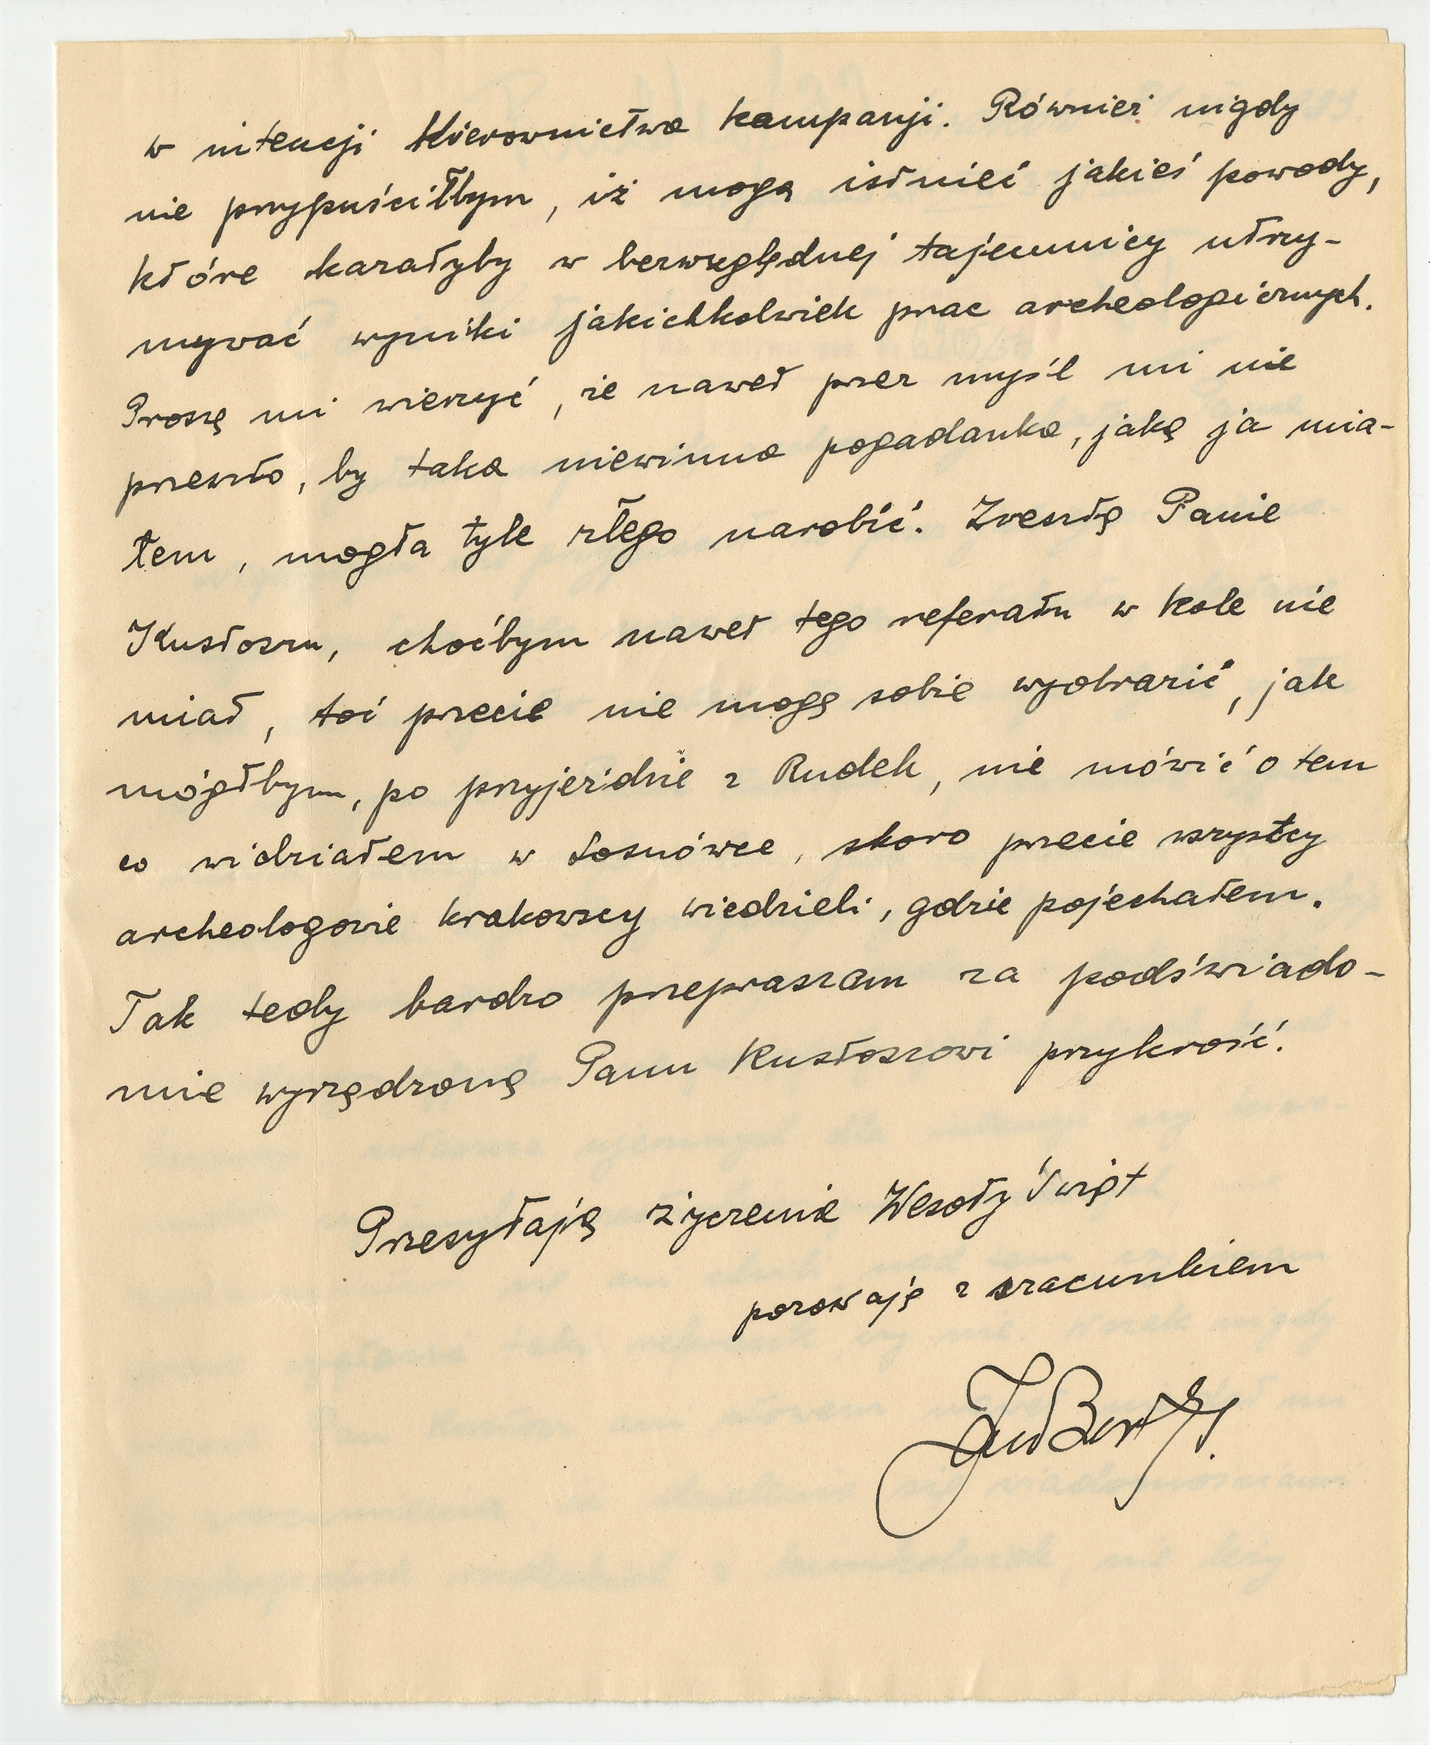 w intencji Kierownictwa kampanji. Również nigdy
nie przypuściłbym, iż mogą istnieć jakieś powody,
które kazałyby w bezwzględnej tajemnicy utrzy-
mywać wyniki jakichkolwiek prac archeologicznych.
Proszę mi wierzyć, że nawet przez myśl mi nie
przeszło, by taka niewinna pogadanka, jaką ja mia-
łem, mogła tyle złego narobić. Zresztą Panie
Kustoszu, choćbym nawet tego referatu w kole nie
miał, toż przecie nie mogę sobie wyobrazić, jak
mógłbym, po przyjeździe z Rudek, nie mówić o tem
co widziałem w Sosnówce, skoro przecie wszyscy
archeologowie krakowscy wiedzieli, gdzie pojechałem.
Tak tedy bardzo przepraszam za podświado-
mie wyrządzoną Panu Kustoszowi przykrość.
Przesyłając życzenia Wesoły Świąt
pozostaję z szacunkiem